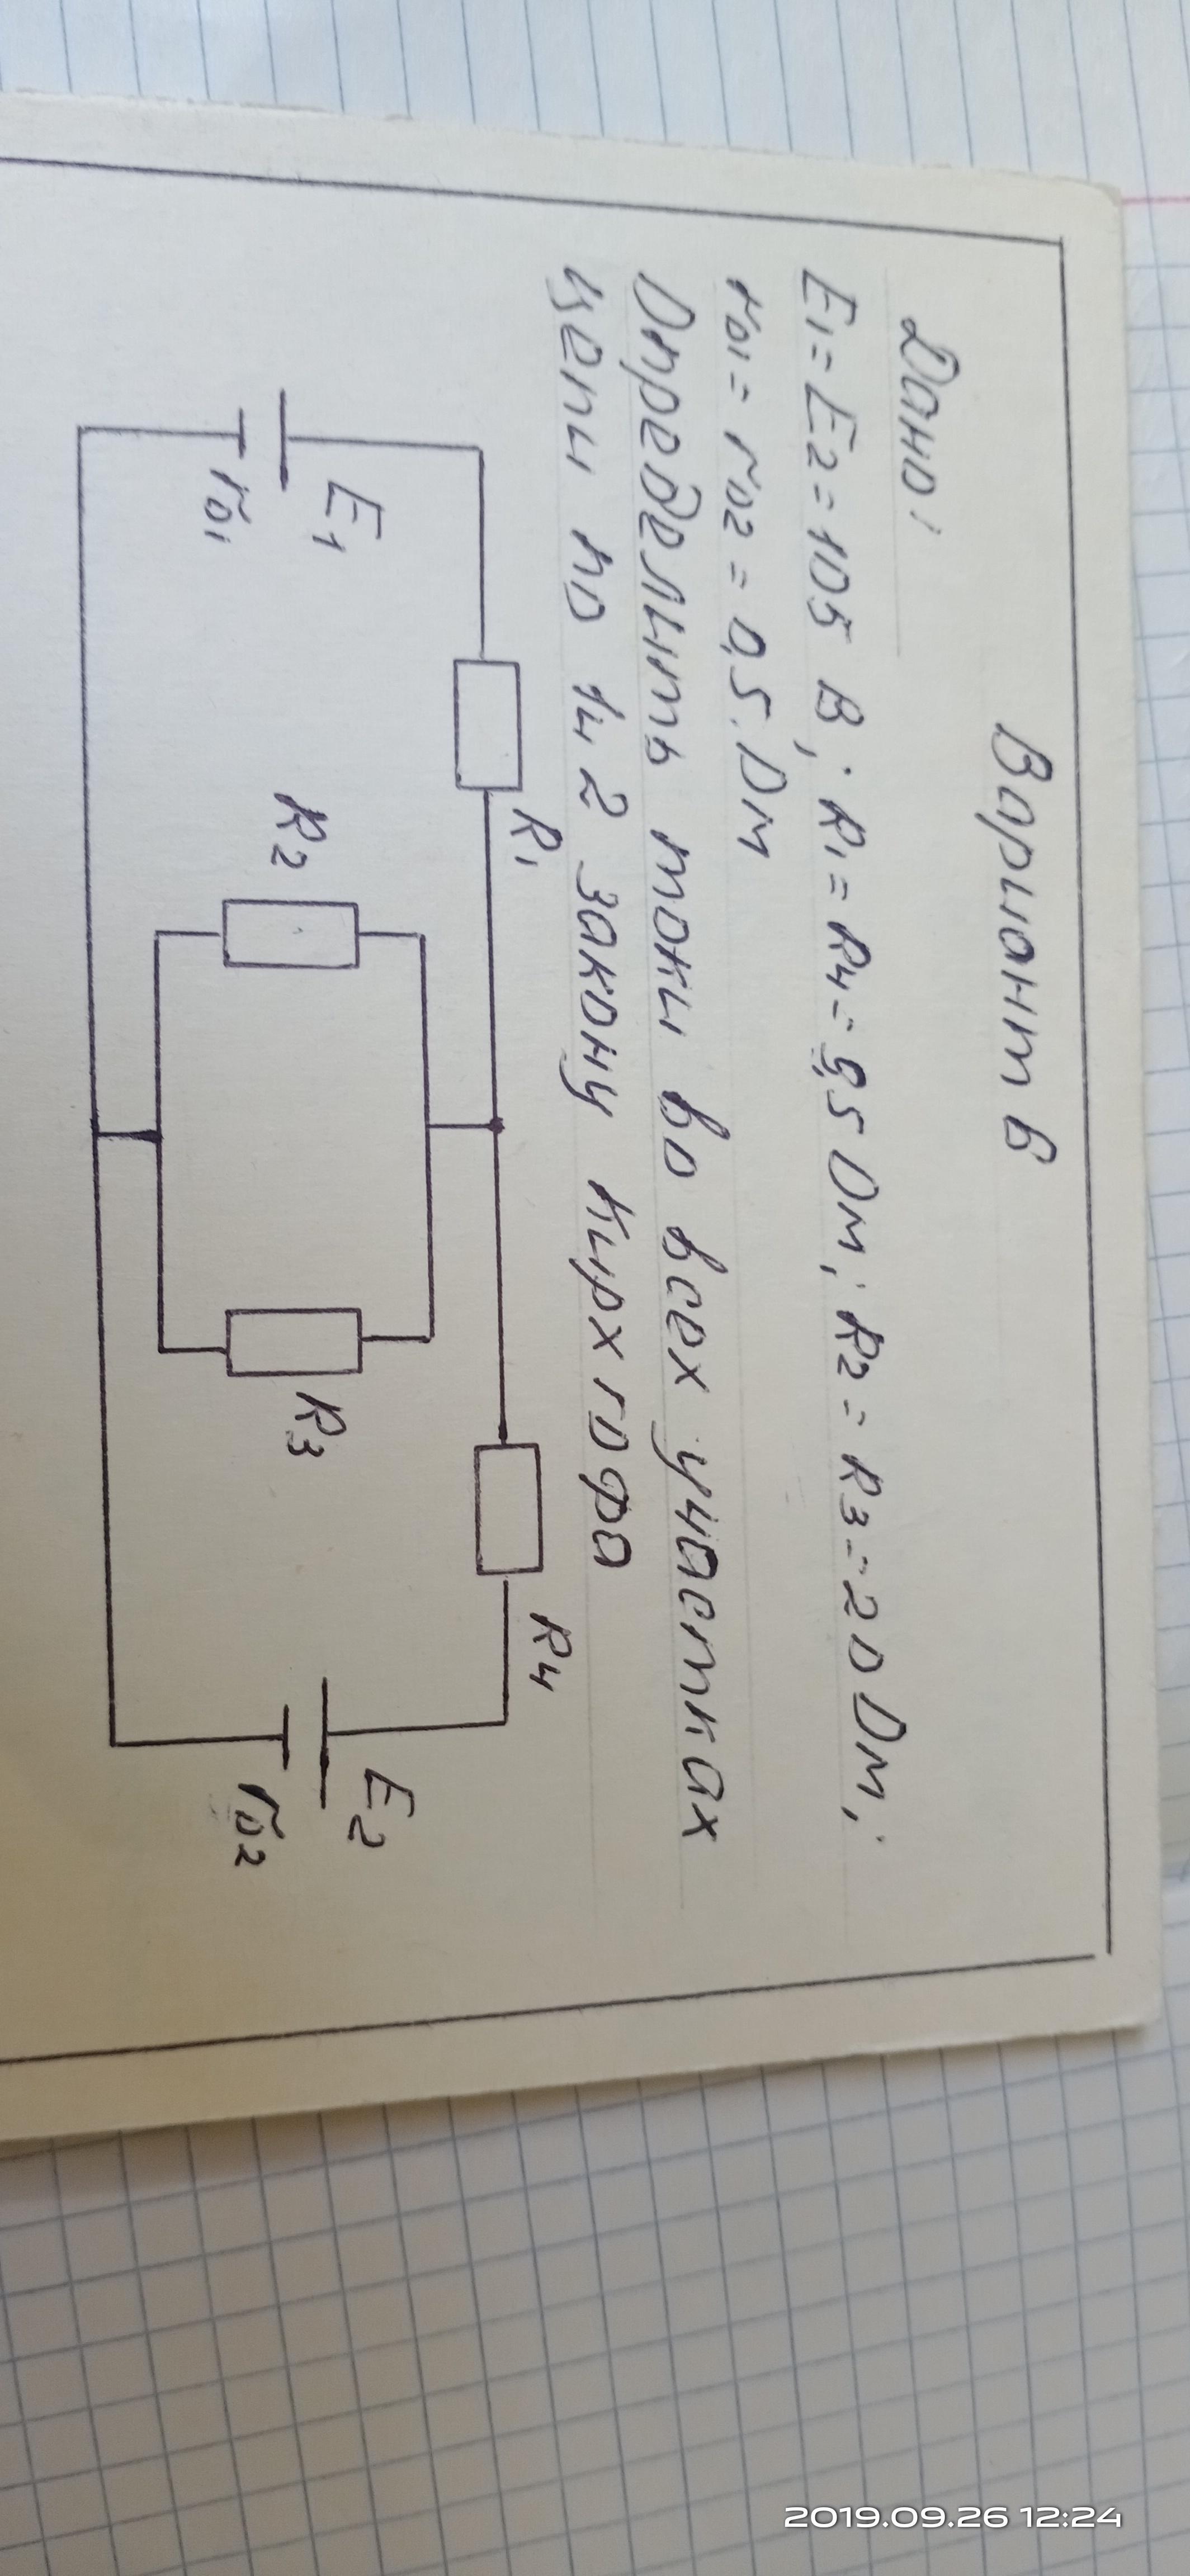 Вариант 6
Дано:
E1 = E2 = 105 В; R1 = R4 = 9,5 Ом; R2 = R3 = 20 Ом;
r01 = r02 = 0,5 Ом
Определить токи во всех участках
цепи по 1 и 2 закону Кирхгофа
R1
R4
E1
r01
R2
R3
E2
r02
2019.09.26 12:24